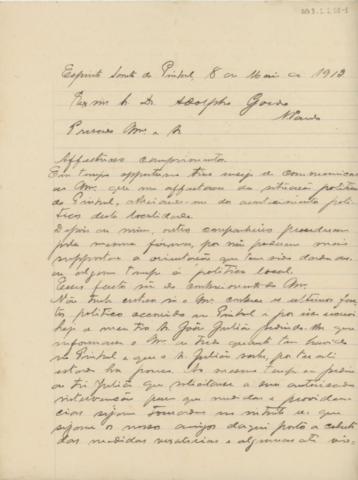 Espirito Santo do Pinhal, 8 de Maio de 1913
Exmo Sr. Dr. Adolpho Gordo
S. Paulo
Prezado Amo e Sr
Affectuosos comprimentos.
Em tempo opportuno tive ensejo de communicar
ao Amo. que me affastava da situação politica
de Pinhal, abstendo-me do acontecimento poli-
tico desta localidade.
Depois de mim, outros companheiros procederam
pela mesma fórma, por não poderem mais
supportar a orientação que tem sido dada de
algum tempo á politica local.
Esses factos são do conhecimento do Amo.
Não tendo
o Amo. os ultimos fac-
tos politicos occorridos no Pinhal e por isso escrevi
hoje a meu tio Sr. João Julião pedindo-lhe que
informasse o Amo. de tudo quanto tem havido
no Pinhal e que o Sr. Julião sabe, por ter ali
estado ha pouco. Ao mesmo tempo eu pedia
ao tio Julião que solicitasse a sua autorisada
intervenção para que medidas e providen-
cias sejam tomadas no intuito de que
sejam os nossos amigos daqui postos a coberto
das medidas vexatorias e algumas até vio-